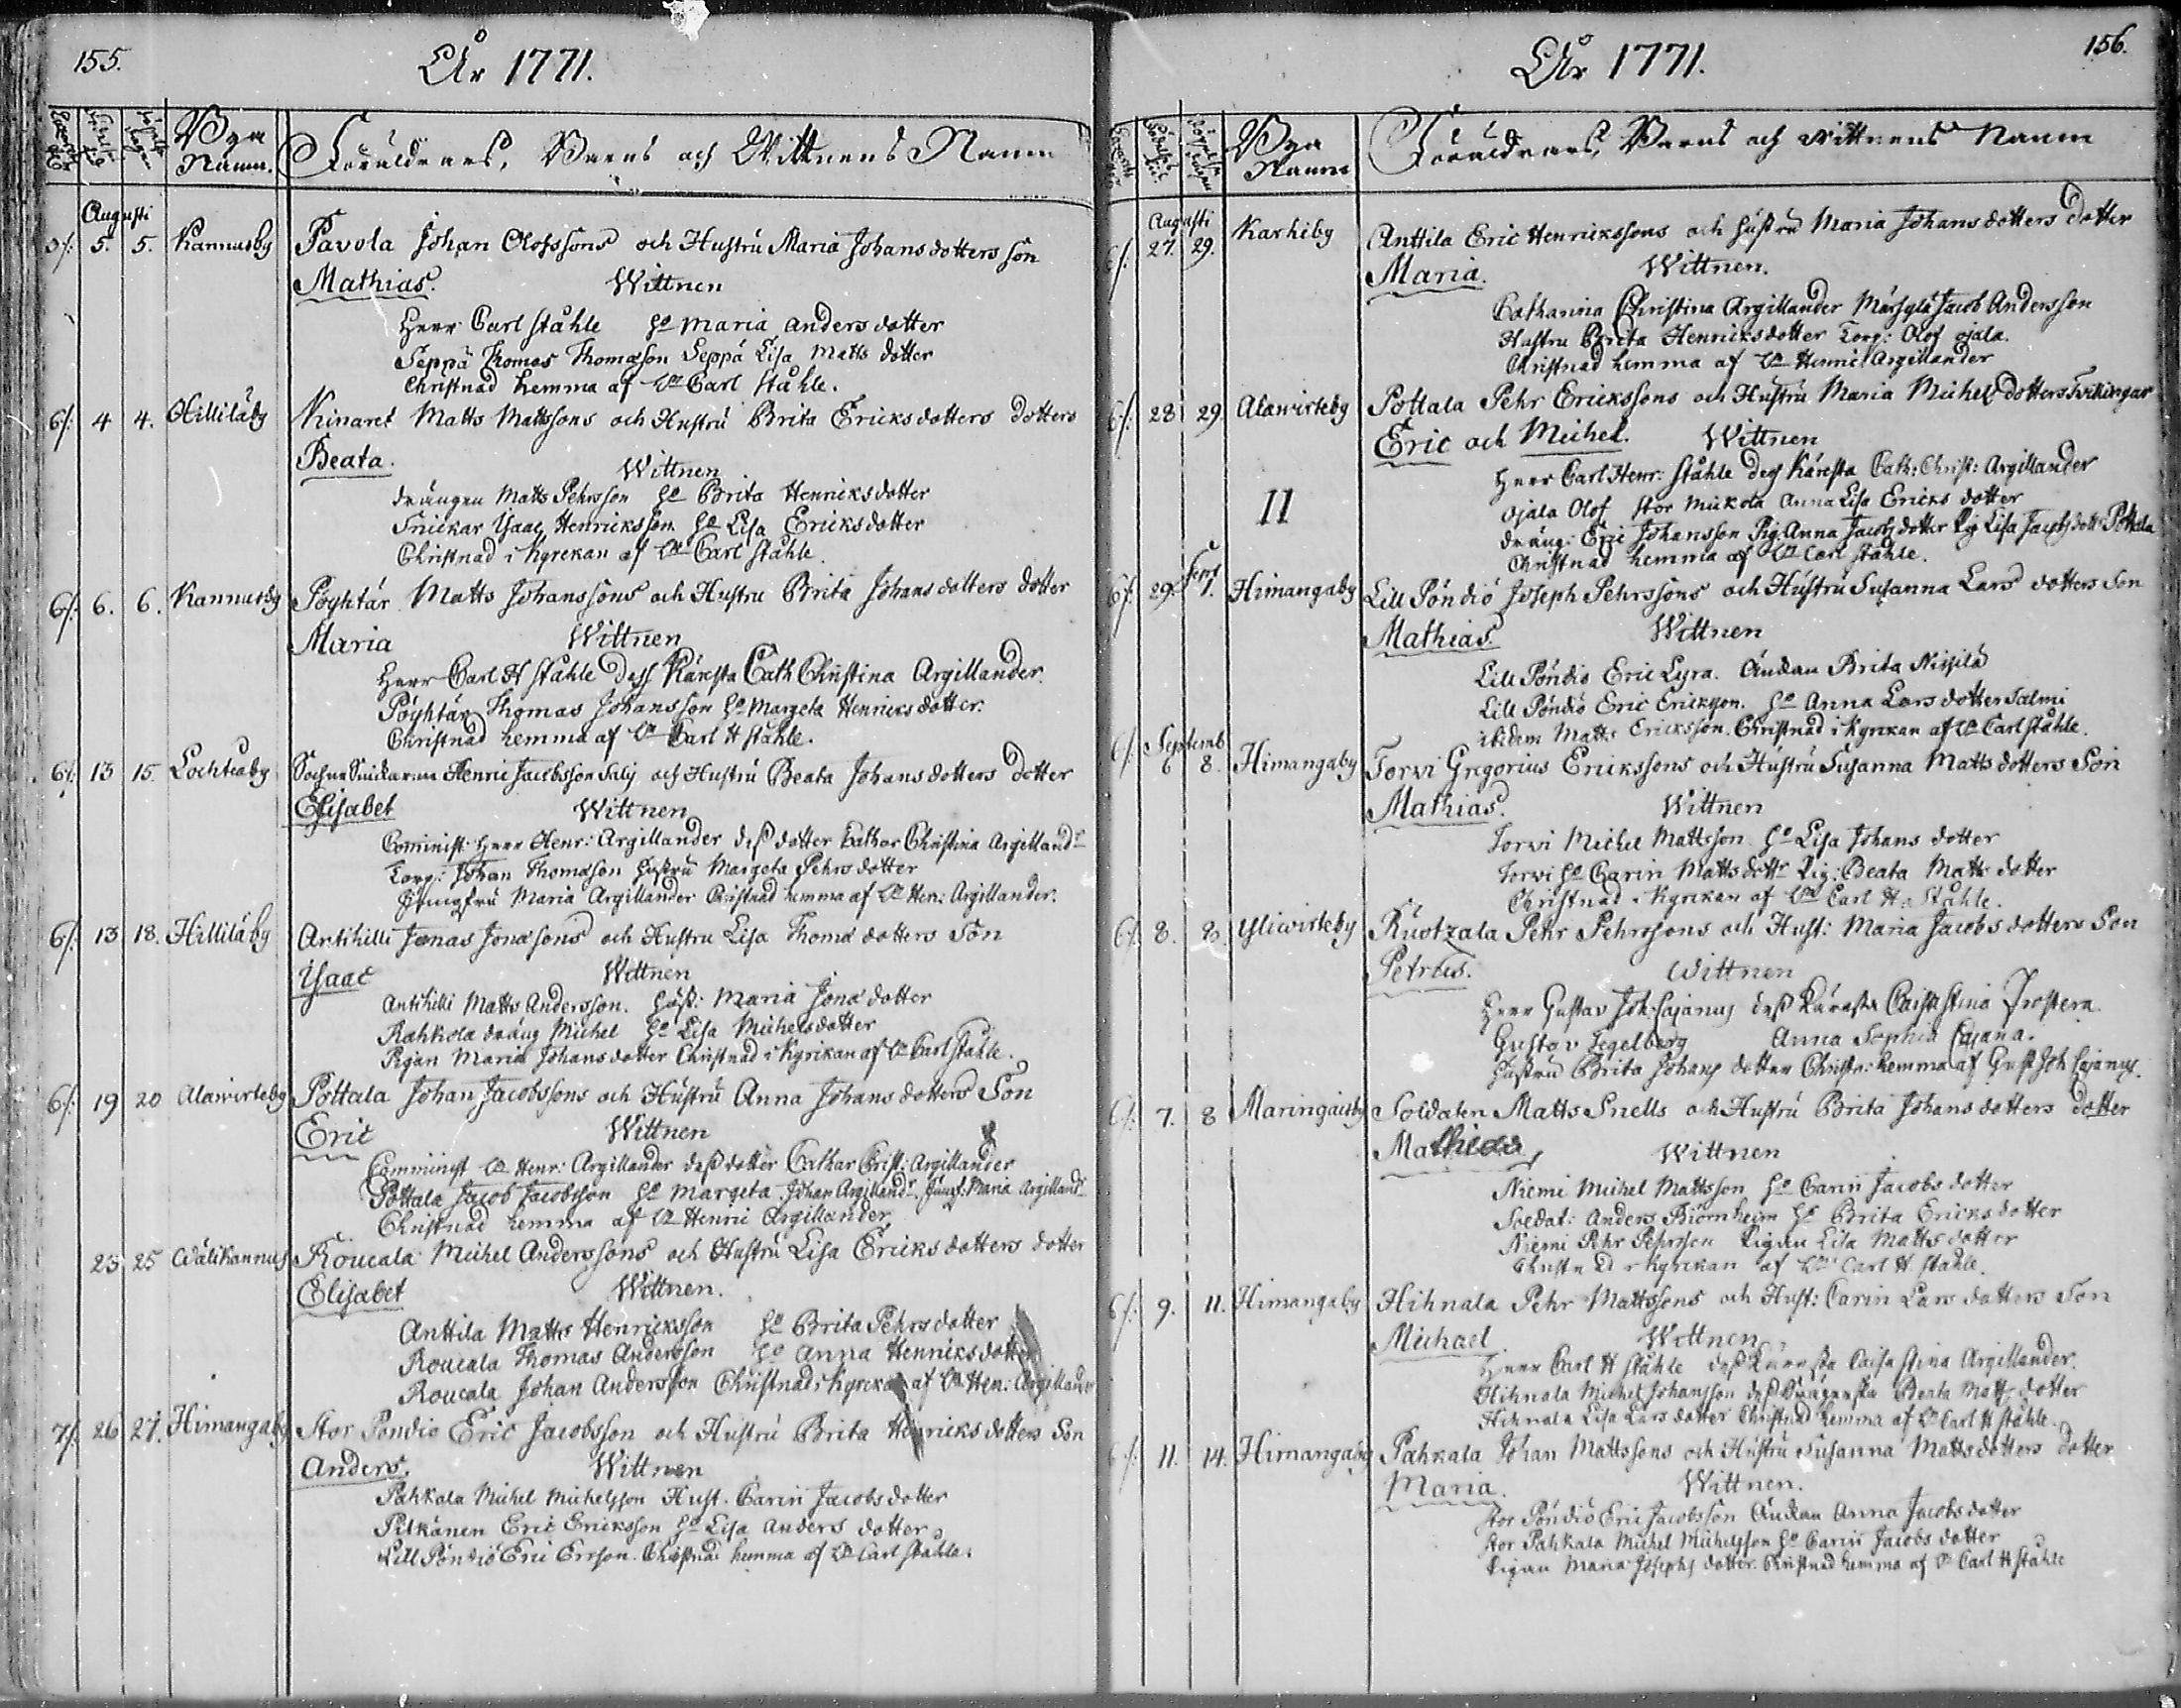 155.
År 1771.
Bya Namn.
Föräldrars, Barns och Wittnens Namn
Augusti
3/: 5. 5. Kannusby Pavola Johan Olofssons och Hustru Maria Johans dotters son
Mathias. Wittnen
Herr Carl ståhle h:o Maria anders dotter
Seppä Thomas Thomasson Seppä Lisa Matts dotter
Christnad hemma af H:r Carl ståhle.
6/: 4 4. Hilliläby Kinaret Matts Mattssons och Hustru Brita Ericksdotters dotters
Beata. Wittnen
drängen Matts Pehrsson h:o Brita Henricksdotter
Snickar Ysaac Henricksson h:o Lisa Ericksdotter
Christnad i kyrckan af H:r Carl ståhle.
6/: 6. 6. Kannusby Pöyhtär Matts Johanssons och Hustru Brita Johans dotters dotter
Maria Wittnen
Herr Carl H ståhle dess Käresta Cath Christina Argillander.
Pöyhtär Thomas Johansson h:o Margeta Henricks dotter.
Christnad hemma af H:r Carl H ståhle.
6/: 13 15. Lochteaby Sochne Snickaren Henric Jacobsson Salij och Hustru Beata Johans dotters dotter
Elisabet Wittnen
Cominist: Herr Henr: Argillander dess dotter Cathar Christina Argilland:r
Torp: Johan Thomasson hustru Margeta Pehrs dotter
Jungfru Maria Argillander Christnad hemma af H:r Hen: Argillander.
6/: 13 18. Hilliläby Antihilli Jonas Jonassons och Hustru Lisa Thoma dotters Son
Ysaac Wittnen
Antihilli Matts Andersson. hust: Maria Jona dotter
Rahkola dräng Michel h:o Lisa Michelsdotter
Pigan Maria Johansdotter Christnad i kyrckan af H:r Carl ståhle.
6/: 19 20 Alawirteby Pottala Johan Jacobssons och Hustru Anna Johans dotters Son
Eric Wittnen
Comminist H:r Henr: Argillander dess dotter Cathar Crist: Argillander
Pottala Jacob Jacobsson h:o Margeta. Johan Argilland:r. Jungf: Maria Argilland:r
Christnad hemma af H:r Henric Argillander
23 25 Wälikannus Roucala Michel Anderssons och Hustru Lisa Ericks dotters dotter
Elisabet Wittnen.
Anttila Matts Henricksson h:o Brita Pehrs dotter
Roucala Thomas Andersson h:o Anna Henricks dotter
Roucala Johan Andersson Christnad i kyrckan af H:r Hen: Argillander
7/: 26 27. Himangaby Stor Pondio Eric Jacobsson och Hustru Brita Henricks dotters Son
Anders. Wittnen
Pahkala Michel Michelsson Hust. Carin Jacobs dotter
Pitkänen Eric Ericksson h:o Lisa Anders dotter
Lill Pöndiö Eric Ersson. Christnad hemma af H:r Carl ståhle.
156.
År 1771.
Bya Namn
Föräldrars, Barns och Wittnens Namn
Augusti
6/: 27. 29. Karhiby Anttila Eric Henrickssons och hustru Maria Johans dotters dotter
Maria. Wittnen.
Catharina Christina Argillander Märsylä Jacob Andersson
Hustru Brita Henricksdotter Torp: Olof ojala.
Christnad hemma af H:r Henric Argillander
6/: 28 29. Alawirteby Pottala Pehr Erickssons och Hustru Maria Michels dotters Twillingar
Eric och Michel. Wittnen
Herr Carl Henr: ståhle dess Käresta Cath: Christ: Argillander
II
ojala Olof stor Mickola Anna Lisa Ericks dotter
dräng: Eric Johansson Pig. Anna Jacobs dotter Pig Lisa Jacobs dott:r Pottala
Christnad hemma af H:r Carl ståhle.
6/: 29. Sept 1. Himangaby Lill Pöndiö Joseph Pehrssons och Hustru Susanna Lars dotters Son
Mathias Wittnen
Lill Pöndiö Eric Lyra. Änckan Brita Nissilä
Lill Pöndiö Eric Ericksson. h:o Anna Lars dotter Salmi
ibidem Matts Ericksson. Christnad i kyrckan af H:r Carl ståhle.
Septemb
6/: 6 8. Himangaby Torvi Gregorius Erickssons och Hustru Susanna Matts dotters Son
Mathias. Wittnen
Torvi Michel Mattsson h:o Lisa Johans dotter
Torvi h:o Carin Matts dott:r Pig: Beata Matts dotter
Christnad i kyrckan af H:r Carl H. ståhle.
6/: 8. 8. Yliwirteby Ruotzala Pehr Pehrssons och Hust: Maria Jacobs dotters Son
Petrus. Wittnen
Herr Gustav Joh: Cajanus dess Käresta Caisa Stina Frostera
Gustav Tegelberg Anna Sophia Cajana.
hustru Brita Johans dotter Christn: hemma af Gust Joh Cajanus.
6/: 7. 8 Maringaisby Soldaten Matts Snells och Hustru Brita Johans dotters dotter
Wittnen
Niemi Michel Mattsson h:o Carin Jacobs dotter
Soldat: Anders Biörnheim h:o Brita Ericks dotter
Niemi Pehr Pehrsson Pigan Lisa Matts dotter
Christnad i kyrckan af H:r Carl H ståhle.
6/: 9. 11. Himangaby Hihnala Pehr Mattssons och Hust: Carin Lars dotters Son
Michael. Wittnen
Herr Carl H ståhle dess Käresta Caisa Stina Argillander.
Hihnala Michel Johansson dess Beata Matts dotter
Hihnala Lisa Lars dotter Christnad hemma af H:r Carl H ståhle.
6/: 11. 14. Himangaby Pahkala Johan Mattssons och Hustru Susanna Matts dotters dotter
Maria. Wittnen.
stor Pöndiö Eric Jacobsson Änckan Anna Jacobs dotter
stor Pahkala Michel Michelsson h:o Carin Jacobs dotter
Pigan Maria Josephs dotter. Christnad hemma af H:r Carl H ståhle